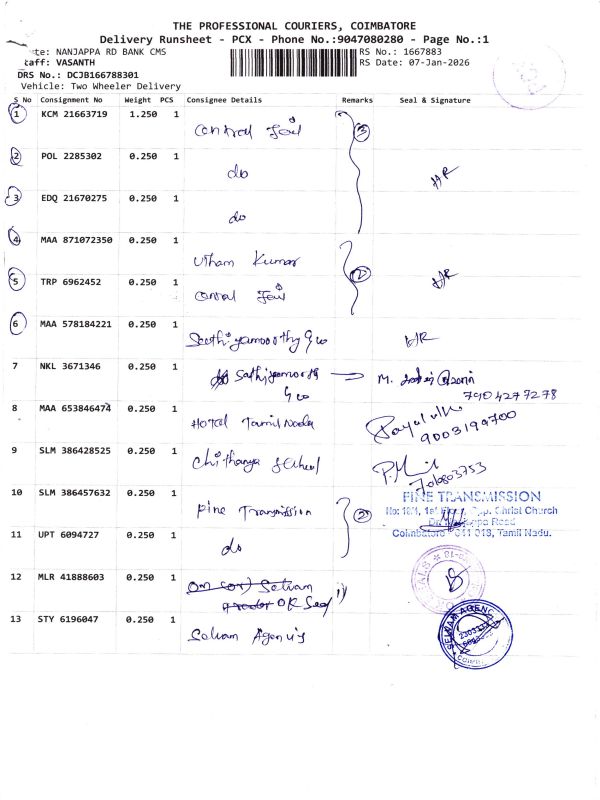 THE PROFESSIONAL COURIERS, COIMBATORE
Delivery Runsheet - PCX - Phone No.:9047080280 - Page No.:1
te: NANJAPPA RD BANK CMS
RS No.: 1667883
taff: VASANTH
RS Date: 07-Jan-2026
DRS No.: DCJB166788301
Vehicle: Two Wheeler Delivery
S No Consignment No Weight PCS Consignee Details Remarks Seal & Signature
1 KCM 21663719 1.250 1 Central Jail 3
2 POL 2285302 0.250 1 do
3 EDQ 21670275 0.250 1 do
4 MAA 871072350 0.250 1 Utham Kumar 2
5 TRP 6962452 0.250 1 Central Jail
6 MAA 578184221 0.250 1 Sathiyamoorthy & co
7 NKL 3671346 0.250 1 Sathiyamoorth
& co
7904277278
8 MAA 653846474 0.250 1 Hotel Tamil Nadu
9003199700
9 SLM 386428525 0.250 1 Chithanya School
10 SLM 386457632 0.250 1 Pine Transmission 2
PINE TRANSMISSION
Opp. Christ Church
Road
Coimbatore - 641 018, Tamil Nadu.
11 UPT 6094727 0.250 1 do
12 MLR 41888603 0.250 1
13 STY 6196047 0.250 1 Selvam Agencis
SELVAM AGENC